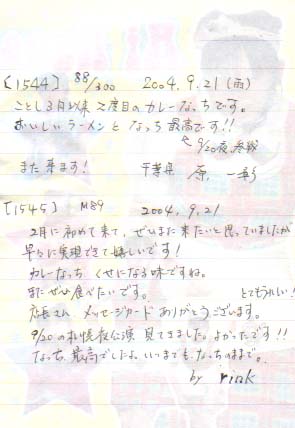 [1544] 88/300 2004.9.21(雨)
ことし3月以来2度目のカレーなっちです。
おいしいラーメンと なっち 最高です!!
9/20夜、参戦
また来ます! 千葉県 原
[1545] M89 2004.9.21
2月に初めて来て、ぜひまた来たいと思っていましたが
早々に実現できて嬉しいです!
カレーなっち くせになる味ですね。
またぜひ食べたいです。 とてもうれしい!
店長さん メッセージカード ありがとうございます。
9/20の札幌夜公演 見てきました。よかったです!!
なっち、最高でしたよ。いつまでも なっちのままで。
by rink